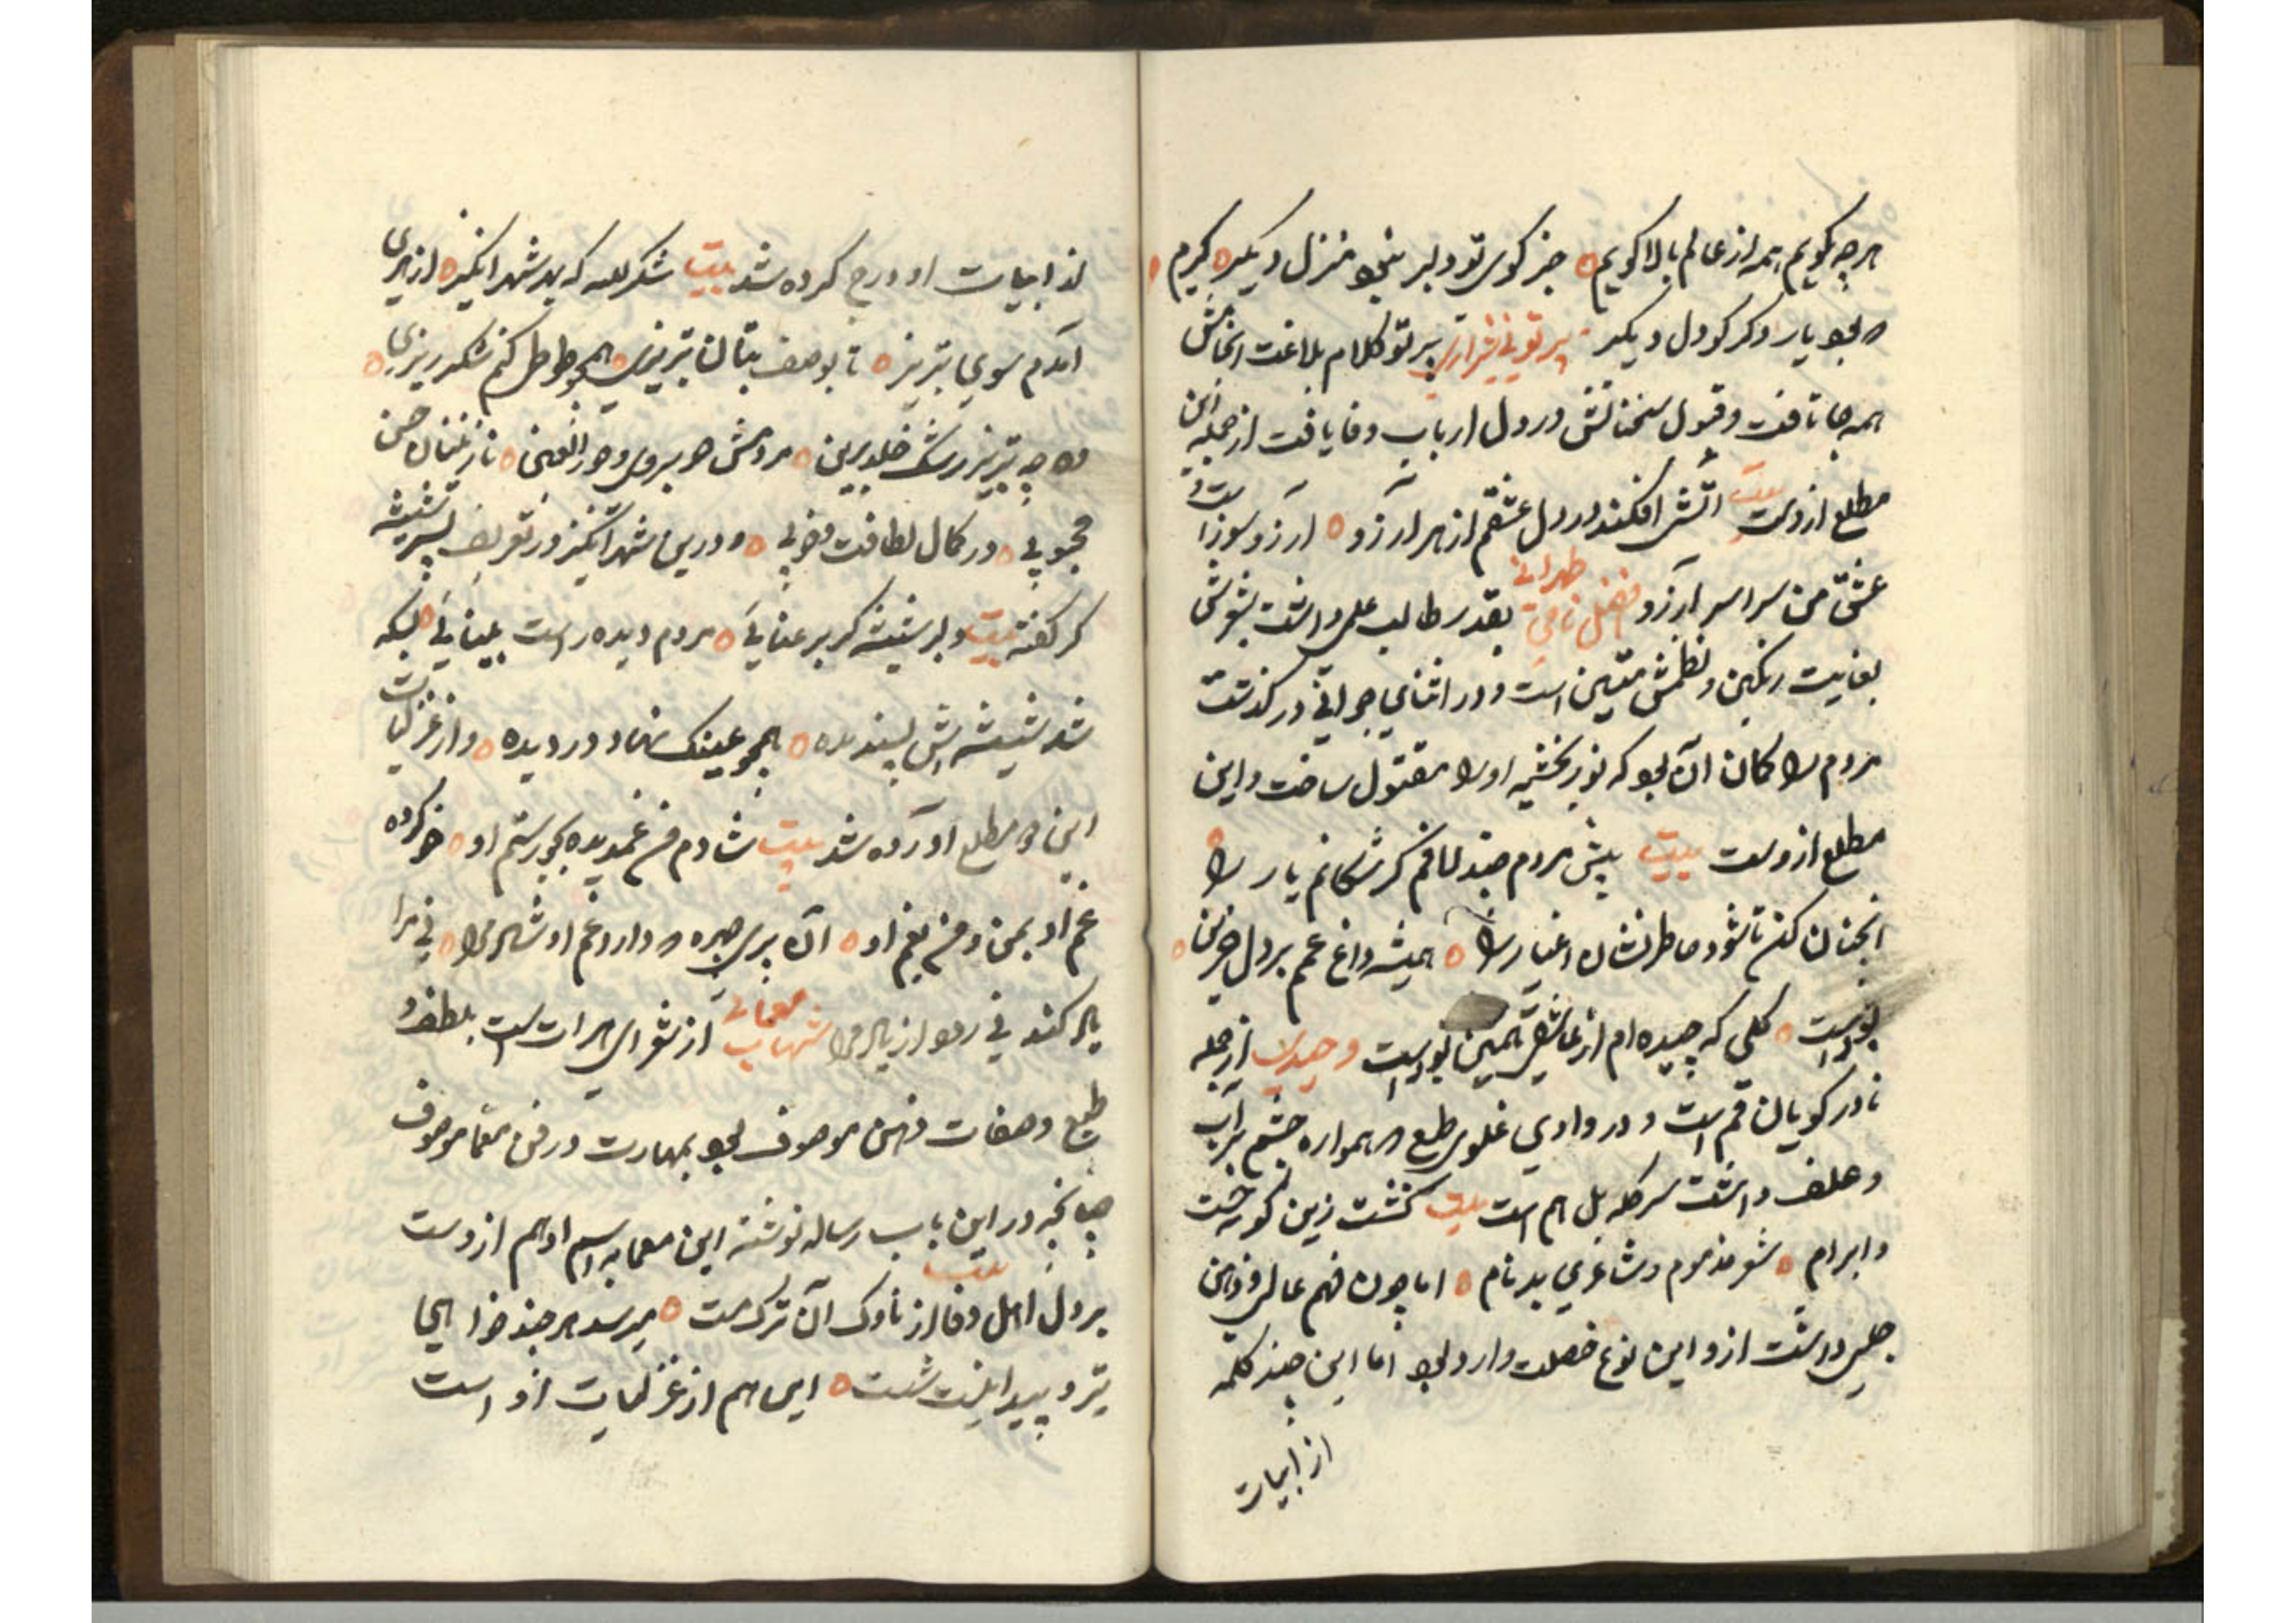 هرچه گویم همه از عالم بالا گویم ه جز کوی تو دلبر نبود منزل دیگر ه گیرم
که بود یار دگر کو دل دیگر پرتوئی شیرازی پرتو کلام بلاغت
همه جا تافت و قبول سخنانش در دل ارباب وفا یافت از جمله این
مطلع ازوست بیت آتش افکند در دل عشقم از هر آرزو ه آرزو سوز است
عشق من سراسر آرزو فضل نامی طهرانی بقدر طالب علمی داشت شعرش
بغایت رنگین و نظمش متین است و در اثنای جوانی در گذشت
مردم را گمان آن بود که نوربخشیه او را مقتول ساخت و این
مطلع ازوست بیت پیش مردم چند لافم کز سگانم یار را ه
آنچنان کن تا شود خاطر نشان اغیار را ه همیشه داغ غمم بر دل حزین ه
بوده است ه گلی که چیده ام از عاشقی همین بوده است وحیدی از جمله
نادر گویان قم است و در وادی غلوی طبع که همواره چشم بر آب
و علف داشت سر گله بل هم است بیت گشت زین گونه خست
و ابرام ه شعر مذموم و شاعری بدنام ه اما چون فهم عالی و ذهن
داشت ازو این نوع خصلت وارد بود اما این چند کلمه
از ابیات
از ابیات او درج کرده شد بیت شکر لله که شهرانگیز ه از هری
آمدم سوی تبریز ه تا بوصف بتان تبریزی ه همچو طوطی کنم شکر ریزی ه
وه چه تبریز رشک خلد برین ه مردمش حریر وحور العین ه نازنینان حسن
محبوبی ه در کمال لطافت و خوبی ه و درین شهرانگیز در تعریف پسر شیشه
گر گفته بیت دلبر شیشه گر برعنایی ه مردم دیده راست بینایی ه بسکه
شد شیشه اش پسندیده ه همچو عینک نهاد در دیده ه و از غزلیات
این دو مطلع آورده شد بیت شادم من غمدیده بجور و ستم او ه خو کرده
غم او بمن و من بغم او ه آن پری چهره که دارد غم او شاد مرا ه نی مرا
یاد کند نی رود از یاد مرا شهاب معمائی از شعرای هرات است بلطف
طبع و صفات ذهن موصوف بود بمهارت در فن معما موصوف
چنانچه در این باب رساله نوشته این معما به اسم ادهم ازوست
بیت
بر دل اهل وفا از ناوک آن ترک مست ه میرسد هر چند خوا
تیر و پیدا نیست شست ه این هم از غزلیات او است